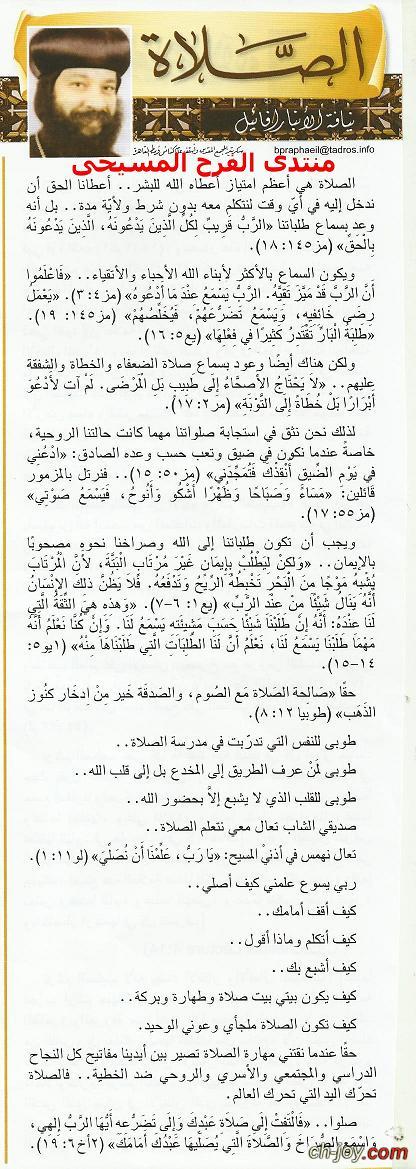 الصَّلاة
نيافة الأنبا رافائيل
bpraphaeil@tadros.info
منتدى الفرح المسيحى
الصلاة هي أعظم امتياز أعطاه الله للبشر.. أعطانا الحق أن
ندخل إليه في أيّ وقت لنتكلم معه بدون شرط ولأية مدة.. بل أنه
وعد بسماع طلباتنا «الرَّبُّ قَرِيبٌ لِكُلِّ الَّذِينَ يَدْعُونَهُ، الَّذِينَ يَدْعُونَهُ
بِالْحَقِّ» (مز١٤٥: ١٨).
ويكون السماع بالأكثر لأبناء الله الأحباء والأتقياء.. «فَاعْلَمُوا
أَنَّ الرَّبَّ قَدْ مَيَّزَ تَقِيَّهُ. الرَّبُّ يَسْمَعُ عِنْدَ مَا أَدْعُوهُ» (مز٤: ٣). «يَعْمَلُ
رِضَى خَائِفِيهِ، وَيَسْمَعُ تَضَرُّعَهُمْ، فَيُخَلِّصُهُمْ» (مز١٤٥: ١٩).
«طَلِبَةُ الْبَارِّ تَقْتَدِرُ كَثِيرًا فِي فِعْلِهَا» (يع٥: ١٦).
ولكن هناك أيضًا وعود بسماع صلاة الضعفاء والخطاة والشفقة
عليهم.. «لاَ يَحْتَاجُ الأَصِحَّاءُ إِلَى طَبِيبٍ بَلِ الْمَرْضَى. لَمْ آتِ لأَدْعُوَ
أَبْرَارًا بَلْ خُطَاةً إِلَى التَّوْبَةِ» (مر٢: ١٧).
لذلك نحن نثق في استجابة صلواتنا مهما كانت حالتنا الروحية،
خاصةً عندما نكون في ضيق وتعب حسب وعده الصادق: «ادْعُنِي
فِي يَوْمِ الضِّيقِ أُنْقِذْكَ فَتُمَجِّدَنِي» (مز٥٠: ١٥).. فنرتل بالمزمور
قائلين: «مَسَاءً وَصَبَاحًا وَظُهْرًا أَشْكُو وَأَنُوحُ، فَيَسْمَعُ صَوْتِي»
(مز٥٥: ١٧).
ويجب أن تكون طلباتنا إلى الله وصراخنا نحوه مصحوبًا
بالإيمان.. «وَلكِنْ لِيَطْلُبْ بِإِيمَانٍ غَيْرَ مُرْتَابٍ الْبَتَّةَ، لأَنَّ الْمُرْتَابَ
يُشْبِهُ مَوْجًا مِنَ الْبَحْرِ تَخْبِطُهُ الرِّيحُ وَتَدْفَعُهُ. فَلاَ يَظُنَّ ذلِكَ الإِنْسَانُ
أَنَّهُ يَنَالُ شَيْئًا مِنْ عِنْدِ الرَّبِّ» (يع١: ٦-٧). «وَهذِهِ هِيَ الثِّقَةُ الَّتِي
لَنَا عِنْدَهُ: أَنَّهُ إِنْ طَلَبْنَا شَيْئًا حَسَبَ مَشِيئَتِهِ يَسْمَعُ لَنَا. وَإِنْ كُنَّا نَعْلَمُ أَنَّهُ
مَهْمَا طَلَبْنَا يَسْمَعُ لَنَا، نَعْلَمُ أَنَّ لَنَا الطَّلِبَاتِ الَّتِي طَلَبْنَاهَا مِنْهُ» (١يو٥:
١٤-١٥).
حقًا «صَالحة الصَّلاة مَع الصُوم، والصَدقَة خَير مِنْ اِدخَار كنُوز
الذَهَب» (طوبيا ١٢: ٨).
طوبى للنفس التي تدرّبت في مدرسة الصلاة..
طوبى لِمَنْ عرف الطريق إلى المخدع بل إلى قلب الله..
طوبى للقلب الذي لا يشبع إلاَّ بحضور الله..
صديقي الشاب تعال معي نتعلم الصلاة..
تعال نهمس في أذنيّ المسيح: «يَا رَبُّ، عَلِّمْنَا أَنْ نُصَلِّيَ» (لو١١: ١).
ربي يسوع علمني كيف أصلي..
كيف أقف أمامك..
كيف أتكلم وماذا أقول..
كيف أشبع بك..
كيف يكون بيتي بيت صلاة وطهارة وبركة..
كيف تكون الصلاة ملجأي وعوني الوحيد.
حقًا عندما نقتني مهارة الصلاة تصير بين أيدينا مفاتيح كل النجاح
الدراسي والمجتمعي والأسري والروحي ضد الخطية.. فالصلاة
تحرّك اليد التي تحرك العالم.
صلوا.. «فَالْتَفِتْ إِلَى صَلاَةِ عَبْدِكَ وَإِلَى تَضَرُّعِهِ أَيُّهَا الرَّبُّ إِلهِي،
وَاسْمَعِ الصُّرَاخَ وَالصَّلاَةَ الَّتِي يُصَلِّيهَا عَبْدُكَ أَمَامَكَ» (٢أخ٦: ١٩).
ch-joy.com